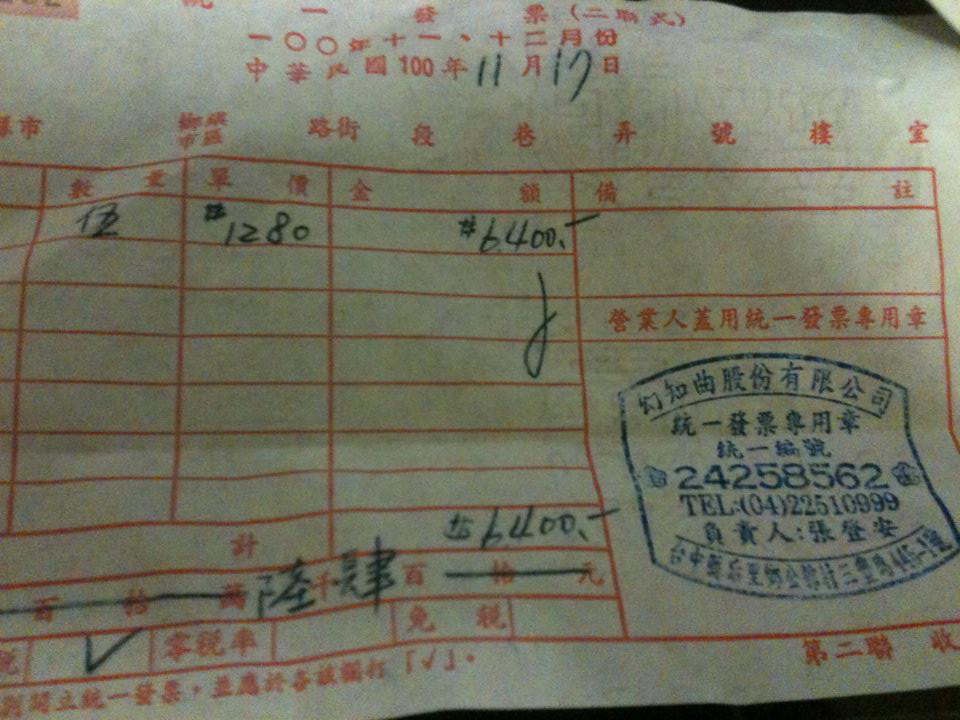 一發票(二聯式)
一〇〇年十一、十二月份
中華民國100年11月17日
市 鄉鎮市區 路街 段 巷 弄 號 樓 室
數量 單價 金額 備註
伍 $1280 $6,400.-
營業人蓋用統一發票專用章
幻知曲股份有限公司
統一發票專用章
統一編號
24258562
TEL:(04)22510999
負責人:張登安
$6,400.-
計
百拾萬陸千肆百拾元
稅 ✓ 零稅率 免稅
別開立統一發票,並應於各該欄打「✓」。
第二聯 收